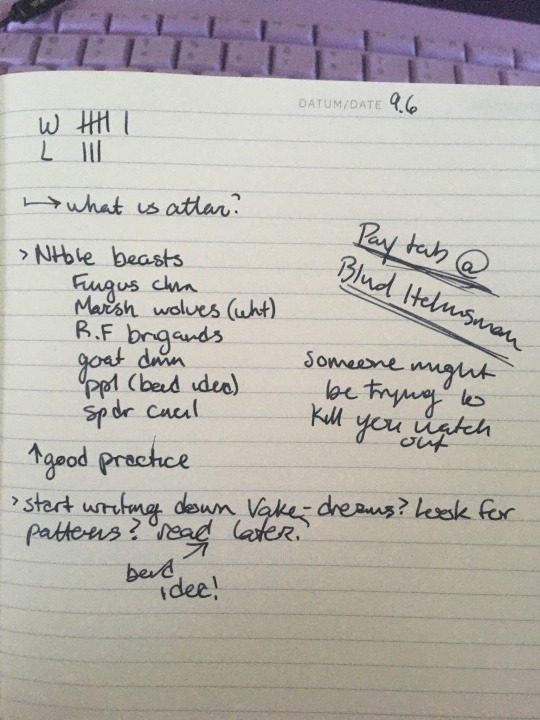 DATUM/DATE 9.6
W 𝍸 |
L |||
↳ what is atlar?
> Ntble beasts
Fungus chm
Marsh wolves (wht)
R.F brigands
goat dmn
ppl (bad idea)
spdr
↑ good practice
Pay tab @
Blind Helmsman
someone might
be trying to
kill you watch
out
> start writing down Vake-dreams? look for
patterns? read later?
bad
idea!